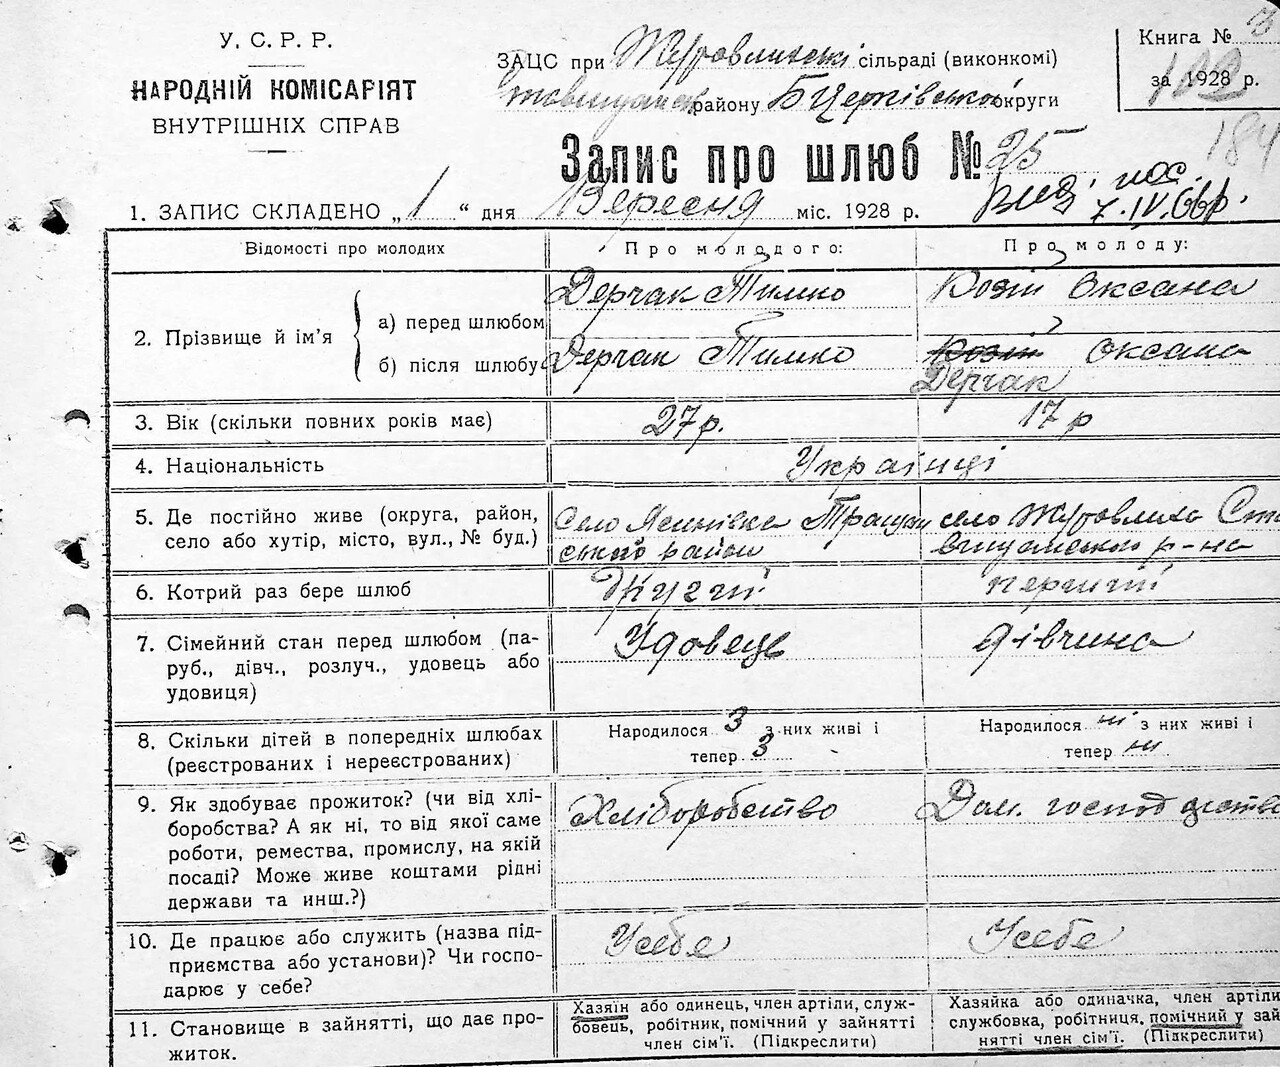 У. С. Р. Р.
НАРОДНІЙ КОМІСАРІЯТ
ВНУТРІШНІХ СПРАВ
ЗАЦС при Журовлиській сільраді (виконкомі)
району Б Церківської округи
Книга № 3
за 1928 р.
184
Запис про шлюб № 25
Вид. пас.
7.IV.66р.
1. ЗАПИС СКЛАДЕНО „1" дня Вересня міс. 1928 р.
Відомості про молодих
Про молодого:
Про молоду:
2. Прізвище й ім'я
а) перед шлюбом
Дерчак Тимко
Козій Оксана
б) після шлюбу
Дерчак Тимко
Козій Оксана
Дерчак
3. Вік (скільки повних років має)
27 р.
17 р
4. Національність
Українці
5. Де постійно живе (округа, район,
село або хутір, місто, вул., № буд.)
Село
ського район
село Журовлиха Ста
вищанського р-на
6. Котрий раз бере шлюб
Другий
перший
7. Сімейний стан перед шлюбом (па-
руб., дівч., розлуч., удовець або
удовиця)
Удовець
дівчина
8. Скільки дітей в попередніх шлюбах
(реєстрованих і нереєстрованих)
Народилося 3 з них живі і
тепер 3
Народилося ні з них живі і
тепер ні
9. Як здобуває прожиток? (чи від хлі-
боробства? А як ні, то від якої саме
роботи, ремества, промислу, на якій
посаді? Може живе коштами рідні
держави та инш.?)
Хліборобство
Дом. господарство
10. Де працює або служить (назва під-
приємства або установи)? Чи госпо-
дарює у себе?
Усебе
Усебе
11. Становище в зайнятті, що дає про-
житок.
Хазяїн або одинець, член артіли, служ-
бовець, робітник, помічний у зайнятті
член сім'ї. (Підкреслити)
Хазяйка або одиначка, член артіли
службовка, робітниця, помічний у зай
нятті член сім'ї. (Підкреслити)